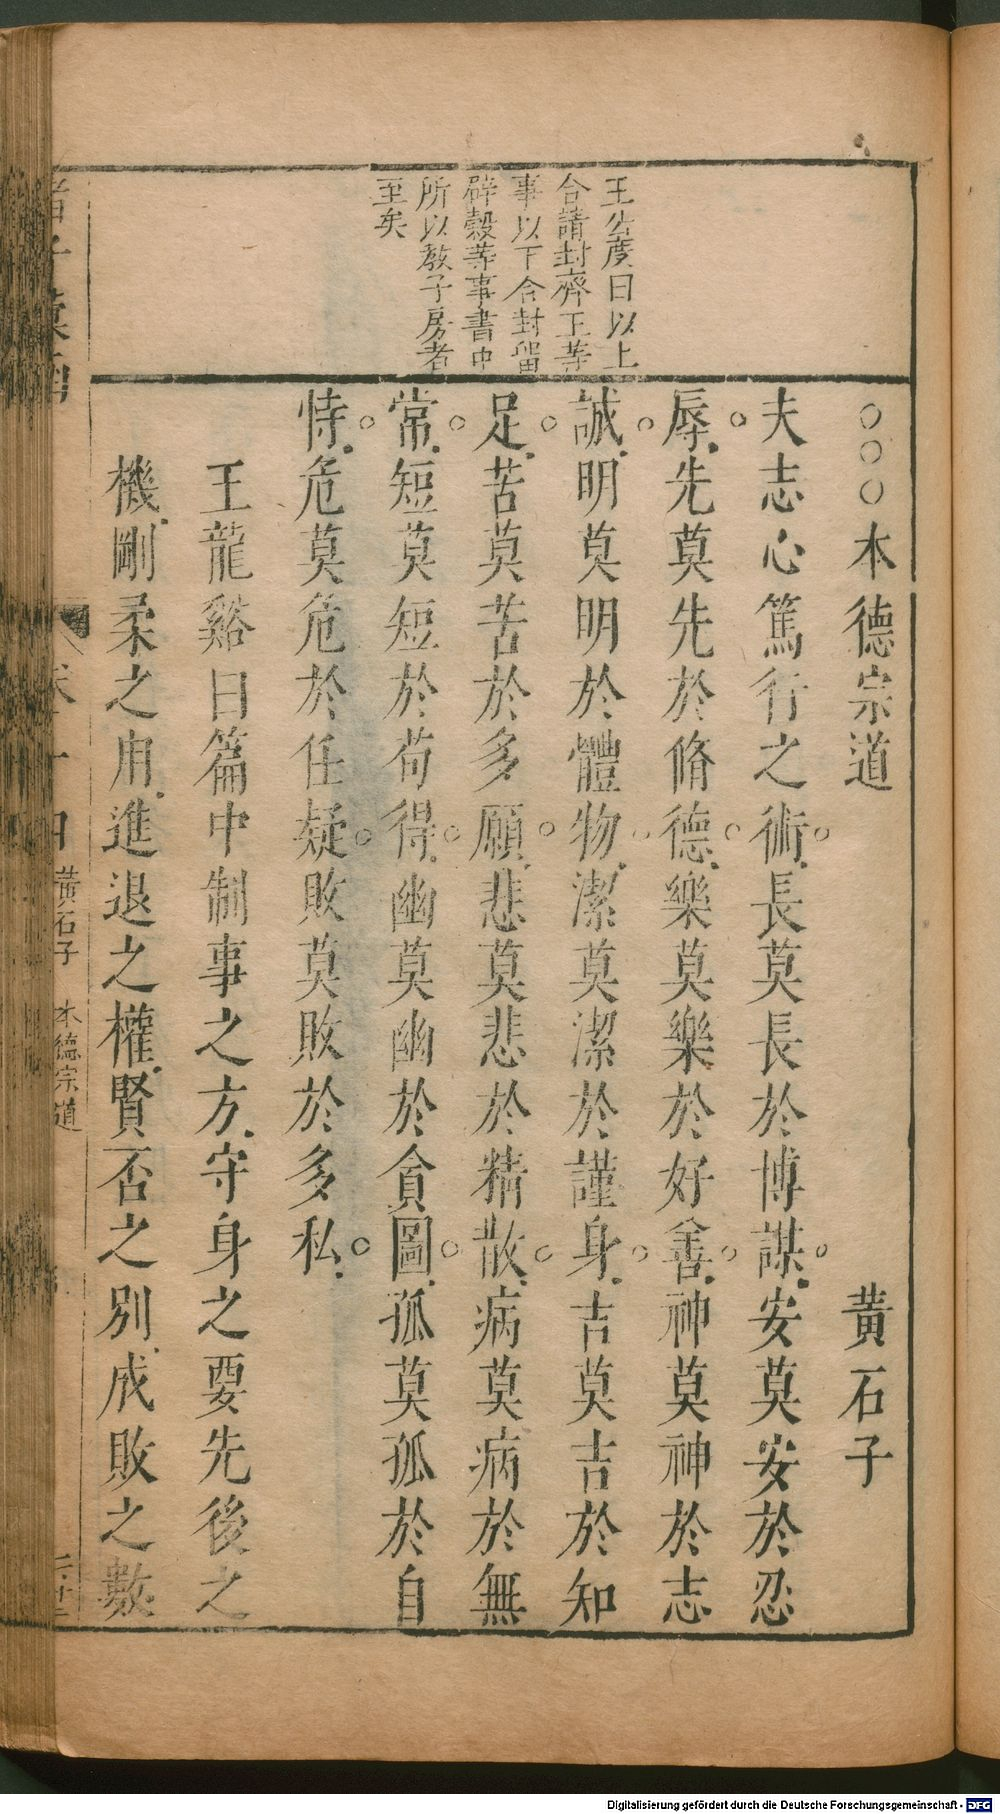 王公度曰以上
合請封齊王等
事以下合封留
辟穀等事書中
所以教子房者
至矣
○○○本德宗道 黃石子
夫志心篤行之術長莫長於博謀安莫安於忍
辱先莫先於脩德樂莫樂於好善神莫神於志
誠明莫明於體物潔莫潔於謹身吉莫吉於知
足苦莫苦於多願悲莫悲於精散病莫病於無
常短莫短於苟得幽莫幽於貪圖孤莫孤於自
恃危莫危於任疑敗莫敗於多私
王龍谿曰篇中制事之方守身之要先後之
機剛柔之用進退之權賢否之別成敗之數
黃石子 本德宗道
Digitalisierung gefördert durch die Deutsche Forschungsgemeinschaft - DFG